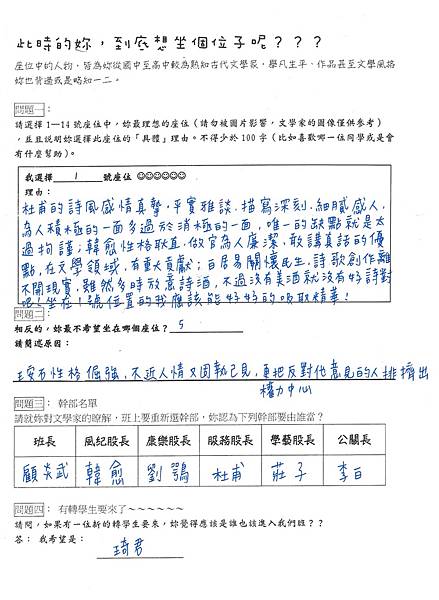 此時的妳，到底想坐個位子呢？？？
座位中的人物，皆為妳從國中至高中較為熟知古代文學家，舉凡生平、作品甚至文學風格
妳也皆通或是略知一二。
問題一：
請選擇 1—14 號座位中，妳最理想的座位（請勿被圖片影響，文學家的圖像僅供參考）
，並且說明妳選擇此座位的「具體」理由。不得少於 100 字（比如喜歡哪一位同學或是會
有什麼幫助）。
我選擇 1 號座位 ☺☺☺☺☺☺
理由：
杜甫的詩風感情真摯，平實雅談，描寫深刻，細膩感人，
為人積極的一面多過於消極的一面，唯一的缺點就是太
過拘謹；韓愈性格耿直，做官為人廉潔，敢講真話的優
點，在文學領域，有重大貢獻；白居易關懷民生，詩歌創作離
不開現實，雖然多時放意詩酒，不過沒有美酒就沒有好詩對
吧！坐在1號位置的我應該能好好的吸取精華！
問題二：
相反的，妳最不希望坐在哪個座位？ 5
請簡述原因：
王安石性格倔強，不近人情又固執己見，更把反對他意見的人排擠出
權力中心
問題三： 幹部名單
請就妳對文學家的瞭解，班上要重新選幹部，妳認為下列幹部要由誰當？
班長 風紀股長 康樂股長 服務股長 學藝股長 公關長
顧炎武 韓愈 劉鶚 杜甫 莊子 李白
問題四： 有轉學生要來了～～～～～～
請問，如果有一位新的轉學生要來，妳覺得應該是誰也該進入我們班？？
答： 我希望是： 琦君